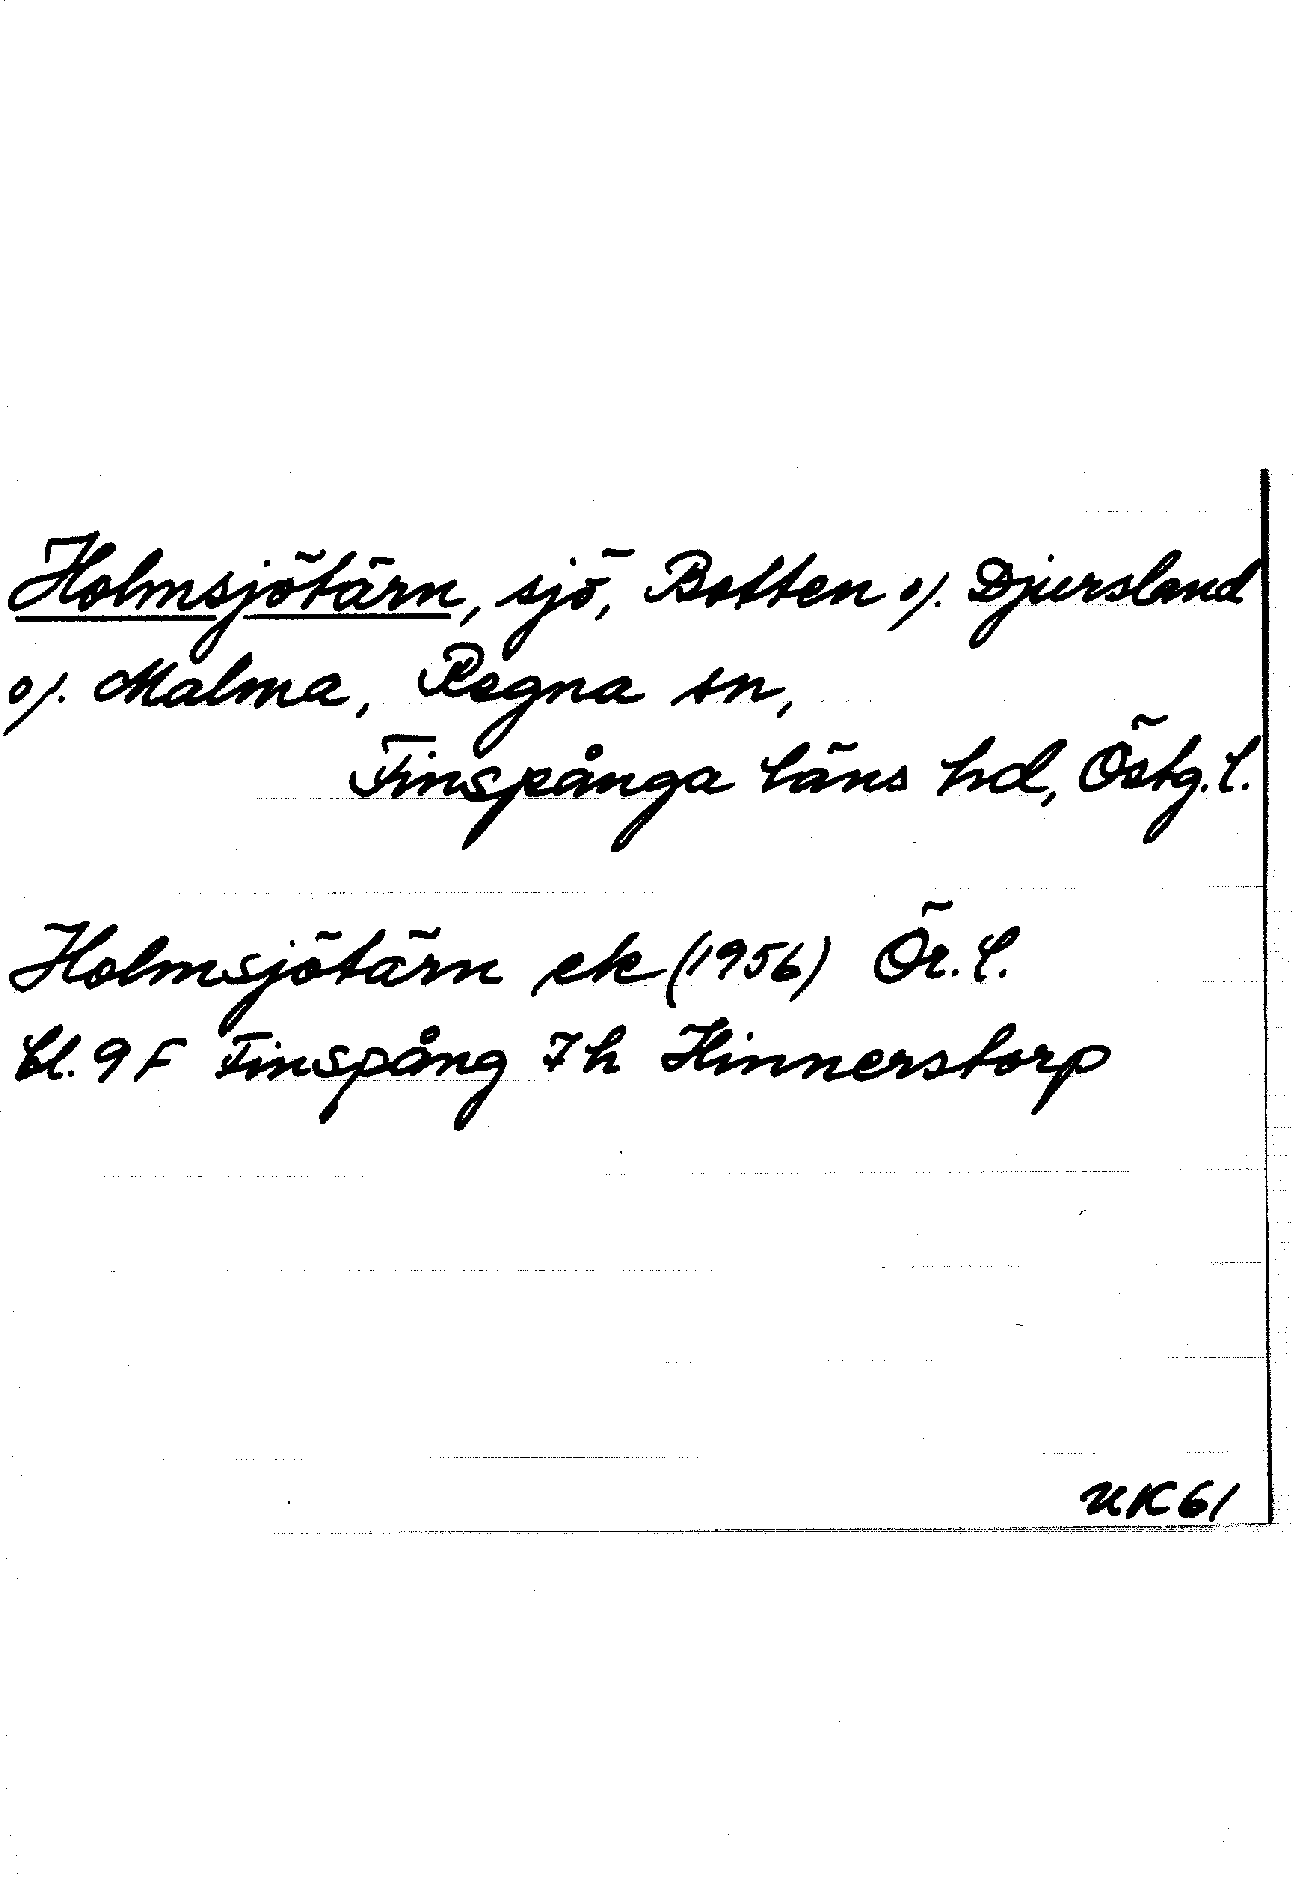 Holmsjötärn, sjö, Botten o/. Djursland
o/. Malma, Regna sn,
Finspånga läns hd, Östg. l.
Holmsjötärn ek (1956) Ör. l.
bl. 9 F Finspång 7 h Hinnerstorp
UK 61